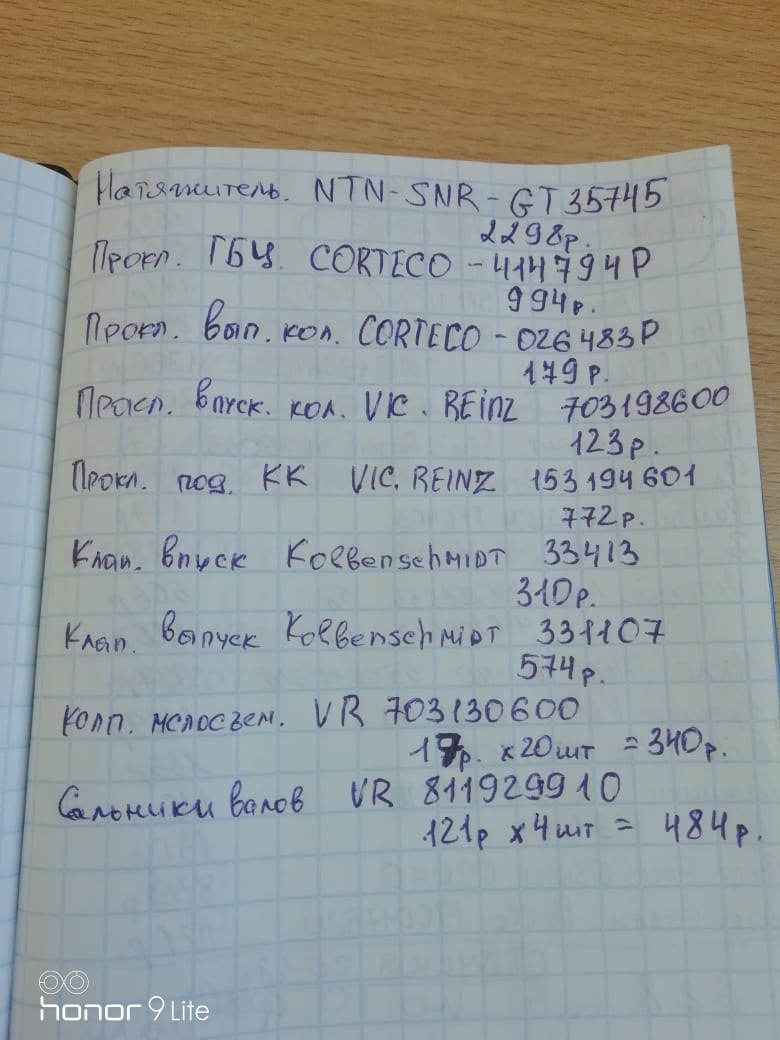 Натяжитель. NTN-SNR-GT35745
2298р.
Прокл. ГБЦ. CORTECO - 414794P
994р.
Прокл. вып. кол. CORTECO - 026483P
179р.
Прокл. впуск. кол. VIC. REINZ 703198600
123р.
Прокл. под. КК VIC. REINZ 153194601
772р.
Клап. впуск Kolbenschmidt 33413
310р.
Клап. выпуск Kolbenschmidt 331107
574р.
Колп. мслосъем. VR 703130600
17р. х20шт = 340р.
Сальники валов VR 811929910
121р х4шт = 484р.
honor 9 Lite